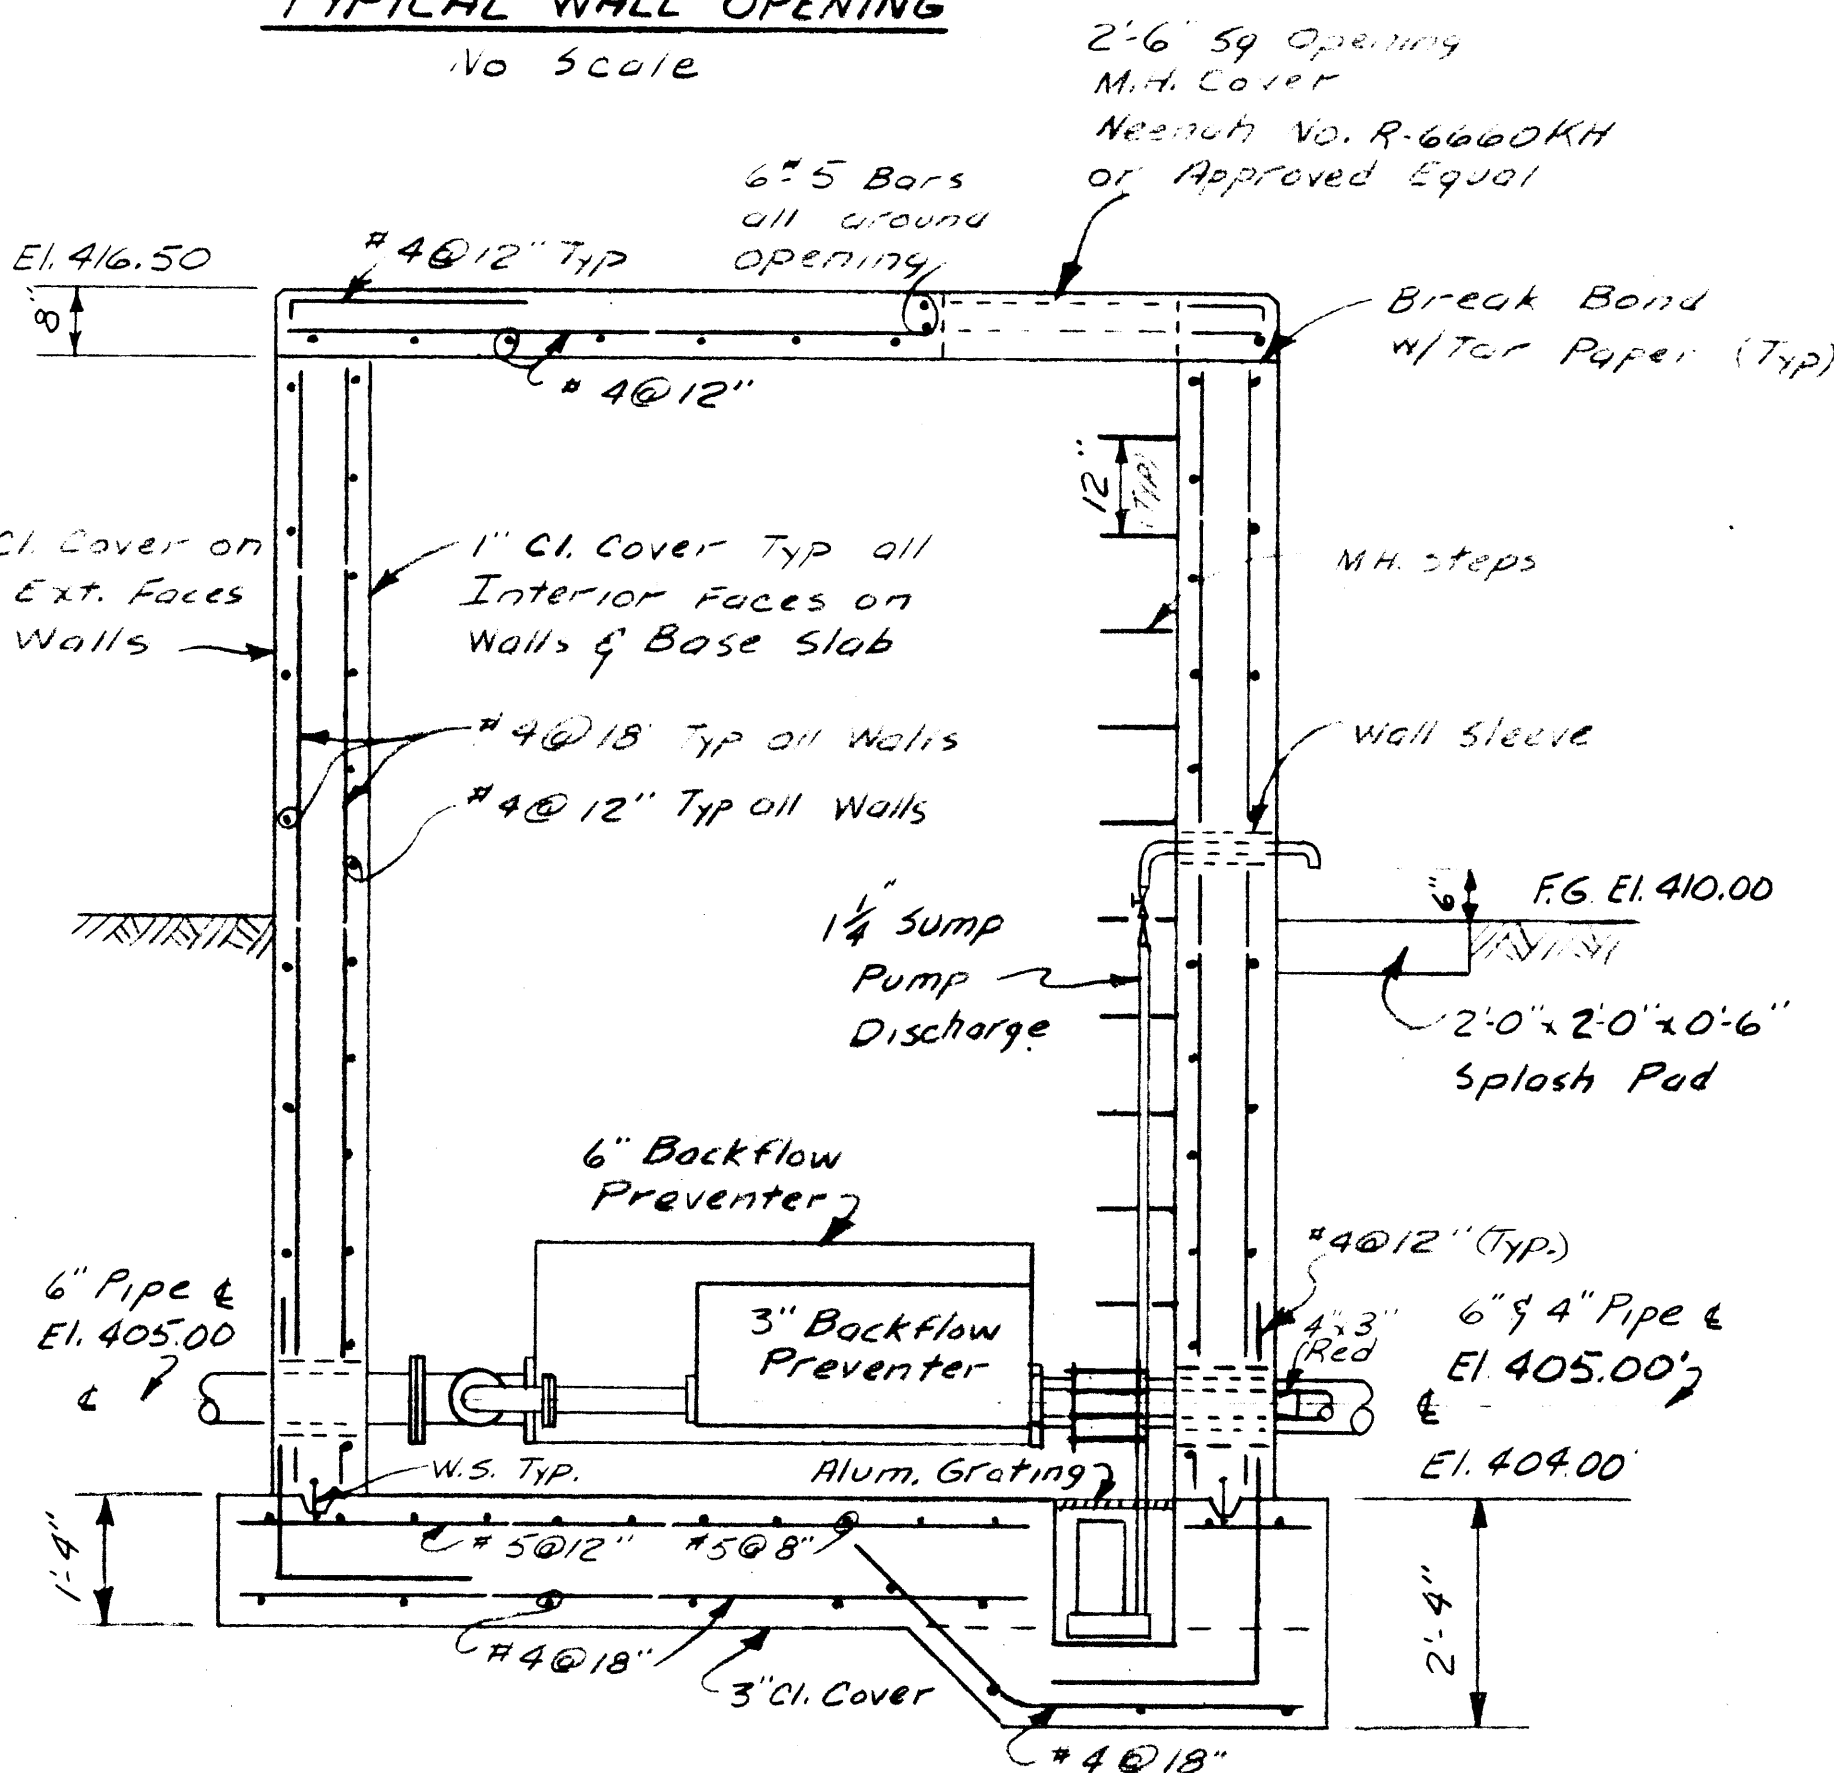 TYPICAL WALL OPENING
No Scale
2'-6" Sq Opening
M.H. Cover
Neenah No. R-6660KH
or Approved Equal
6-#5 Bars
all around
opening
El. 416.50
8"
#4@12" Typ
#4@12"
Break Bond
w/Tar Paper (Typ)
12"
(Typ)
Cl. Cover on
Ext. Faces
Walls
1" Cl. Cover Typ all
Interior Faces on
Walls & Base Slab
M.H. Steps
#4@18" Typ all Walls
#4@12" Typ all Walls
Wall Sleeve
1 1/4" Sump
Pump
Discharge
6"
F.G. El. 410.00
2'-0" x 2'-0" x 0'-6"
Splash Pad
6" Backflow
Preventer
3" Backflow
Preventer
6" Pipe ℄
El. 405.00
℄
#4@12" (Typ.)
4"x3"
Red
6" & 4" Pipe ℄
El. 405.00'
℄
El. 404.00'
W.S. Typ.
Alum. Grating
1'-4"
#5@12"
#5@8"
2'-4"
#4@18"
3" Cl. Cover
#4@18"